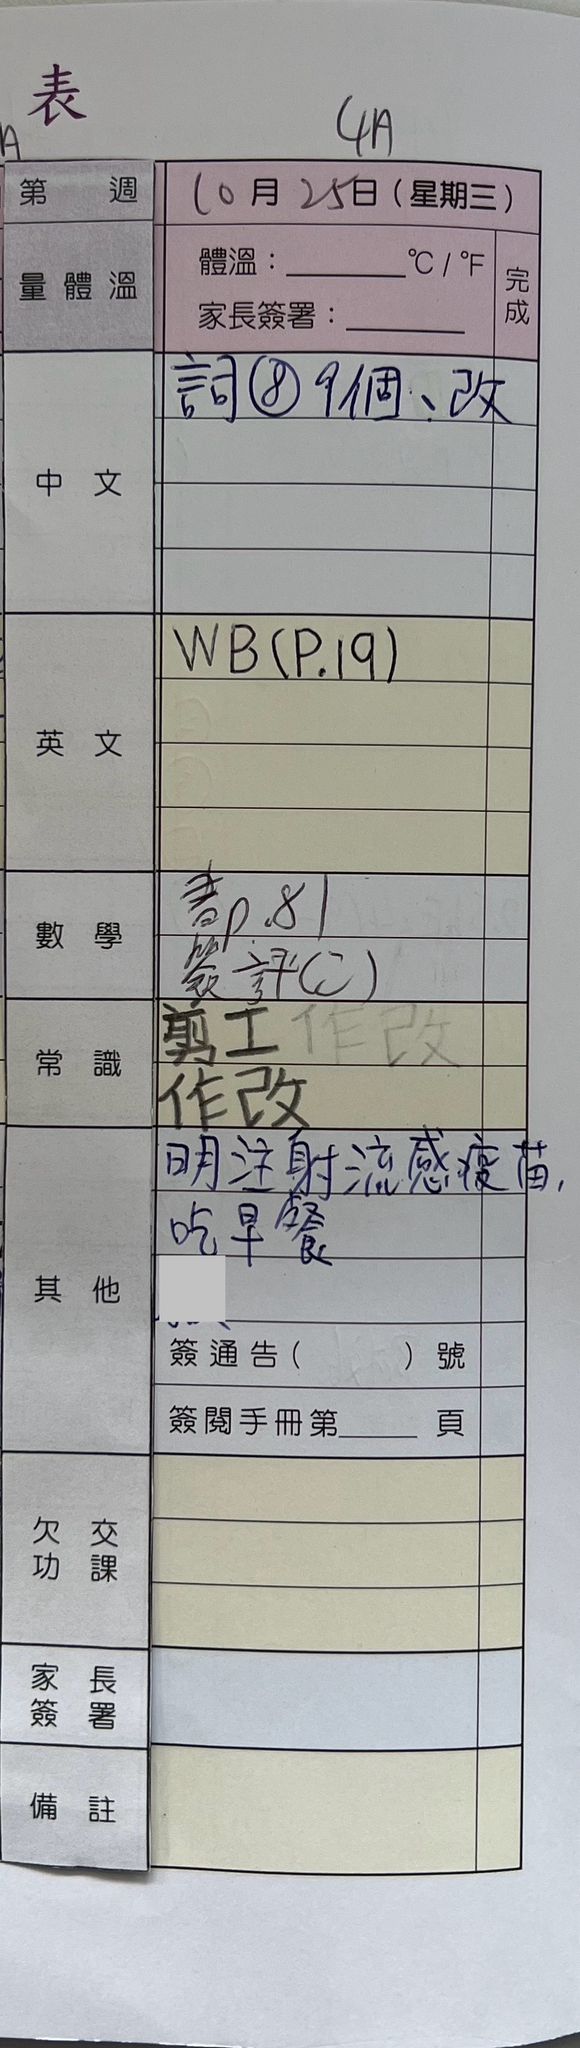 表
4A
A
第 週 10月25日(星期三)
量體溫 體溫:______°C / °F 完成
家長簽署:______
中文 詞⑧9個、改
英文 WB(P.19)
數學 書p.81
簽評(C)
常識 剪工作改
作改
其他 明注射流感疫苗,
吃早餐
簽通告( )號
簽閱手冊第____頁
欠交
功課
家長
簽署
備註